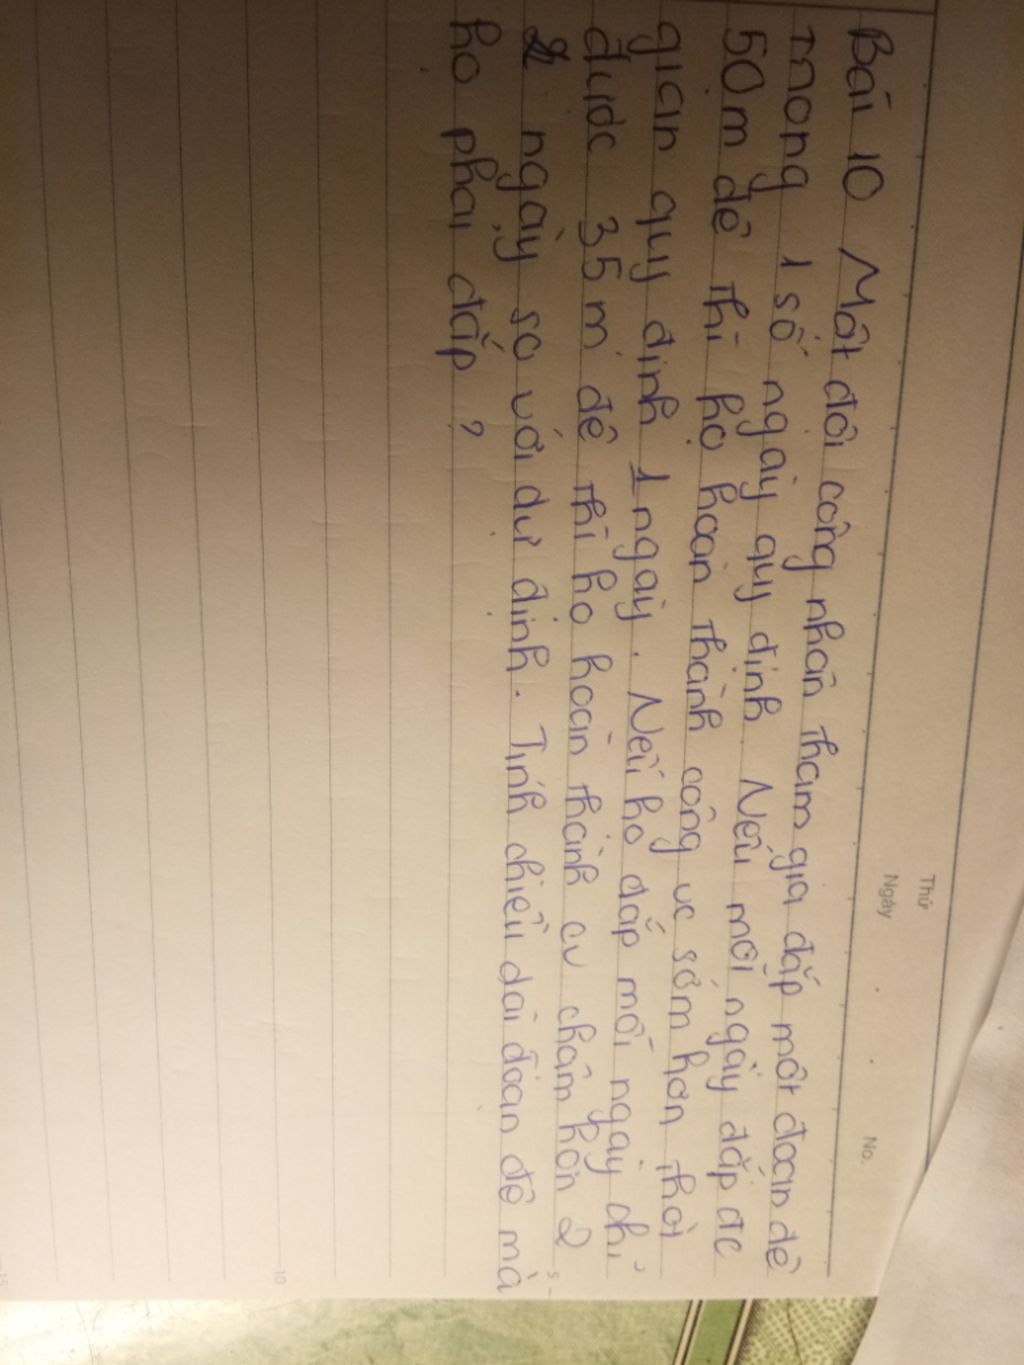 Thứ
Ngày
No.
Bài 10 Một đội công nhân tham gia đắp một đoạn đê
trong 1 số ngày quy định. Nếu mỗi ngày đắp đc
50m đê thì họ hoàn thành công vc sớm hơn thời
gian quy định 1 ngày. Nếu họ đắp mỗi ngày chỉ
được 35m đê thì họ hoàn thành cv chậm hơn 2
ngày so với dự định. Tính chiều dài đoạn đê mà
họ phải đắp ?
5
10
15